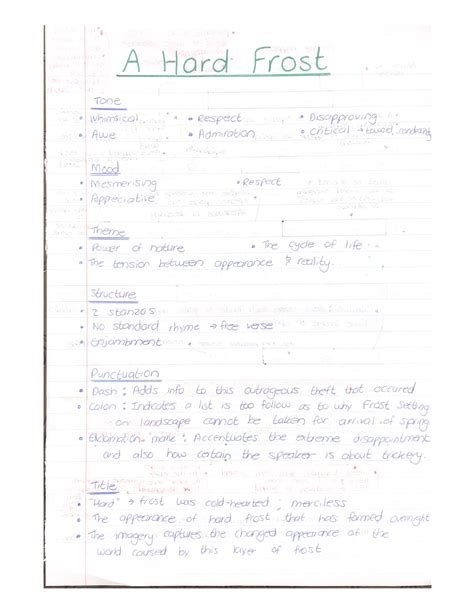 A Hard Frost
Tone
• Whimsical • Respect • Disapproving
• Awe • Admiration • Critical → toward
Mood
• Mesmerising • Respect
• Appreciative
Theme
• Power of nature • The cycle of life
• The tension between appearance & reality.
Structure
• 2 stanzas
• No standard rhyme → free verse
• Enjambment
Punctuation
• Dash : Adds info to this outrageous theft that occured
• Colon : Indicates a list is too follow as to why Frost setting
on landscape cannot be taken for arrival of spring
• Exclamation mark : Accentuates the extreme disappointment
and also how certain the speaker is about trickery.
Title
• "Hard" → frost was cold-hearted ; merciless
• The appearance of hard frost that has formed overnight
• The imagery captures the changed appearance of the
world caused by this layer of frost